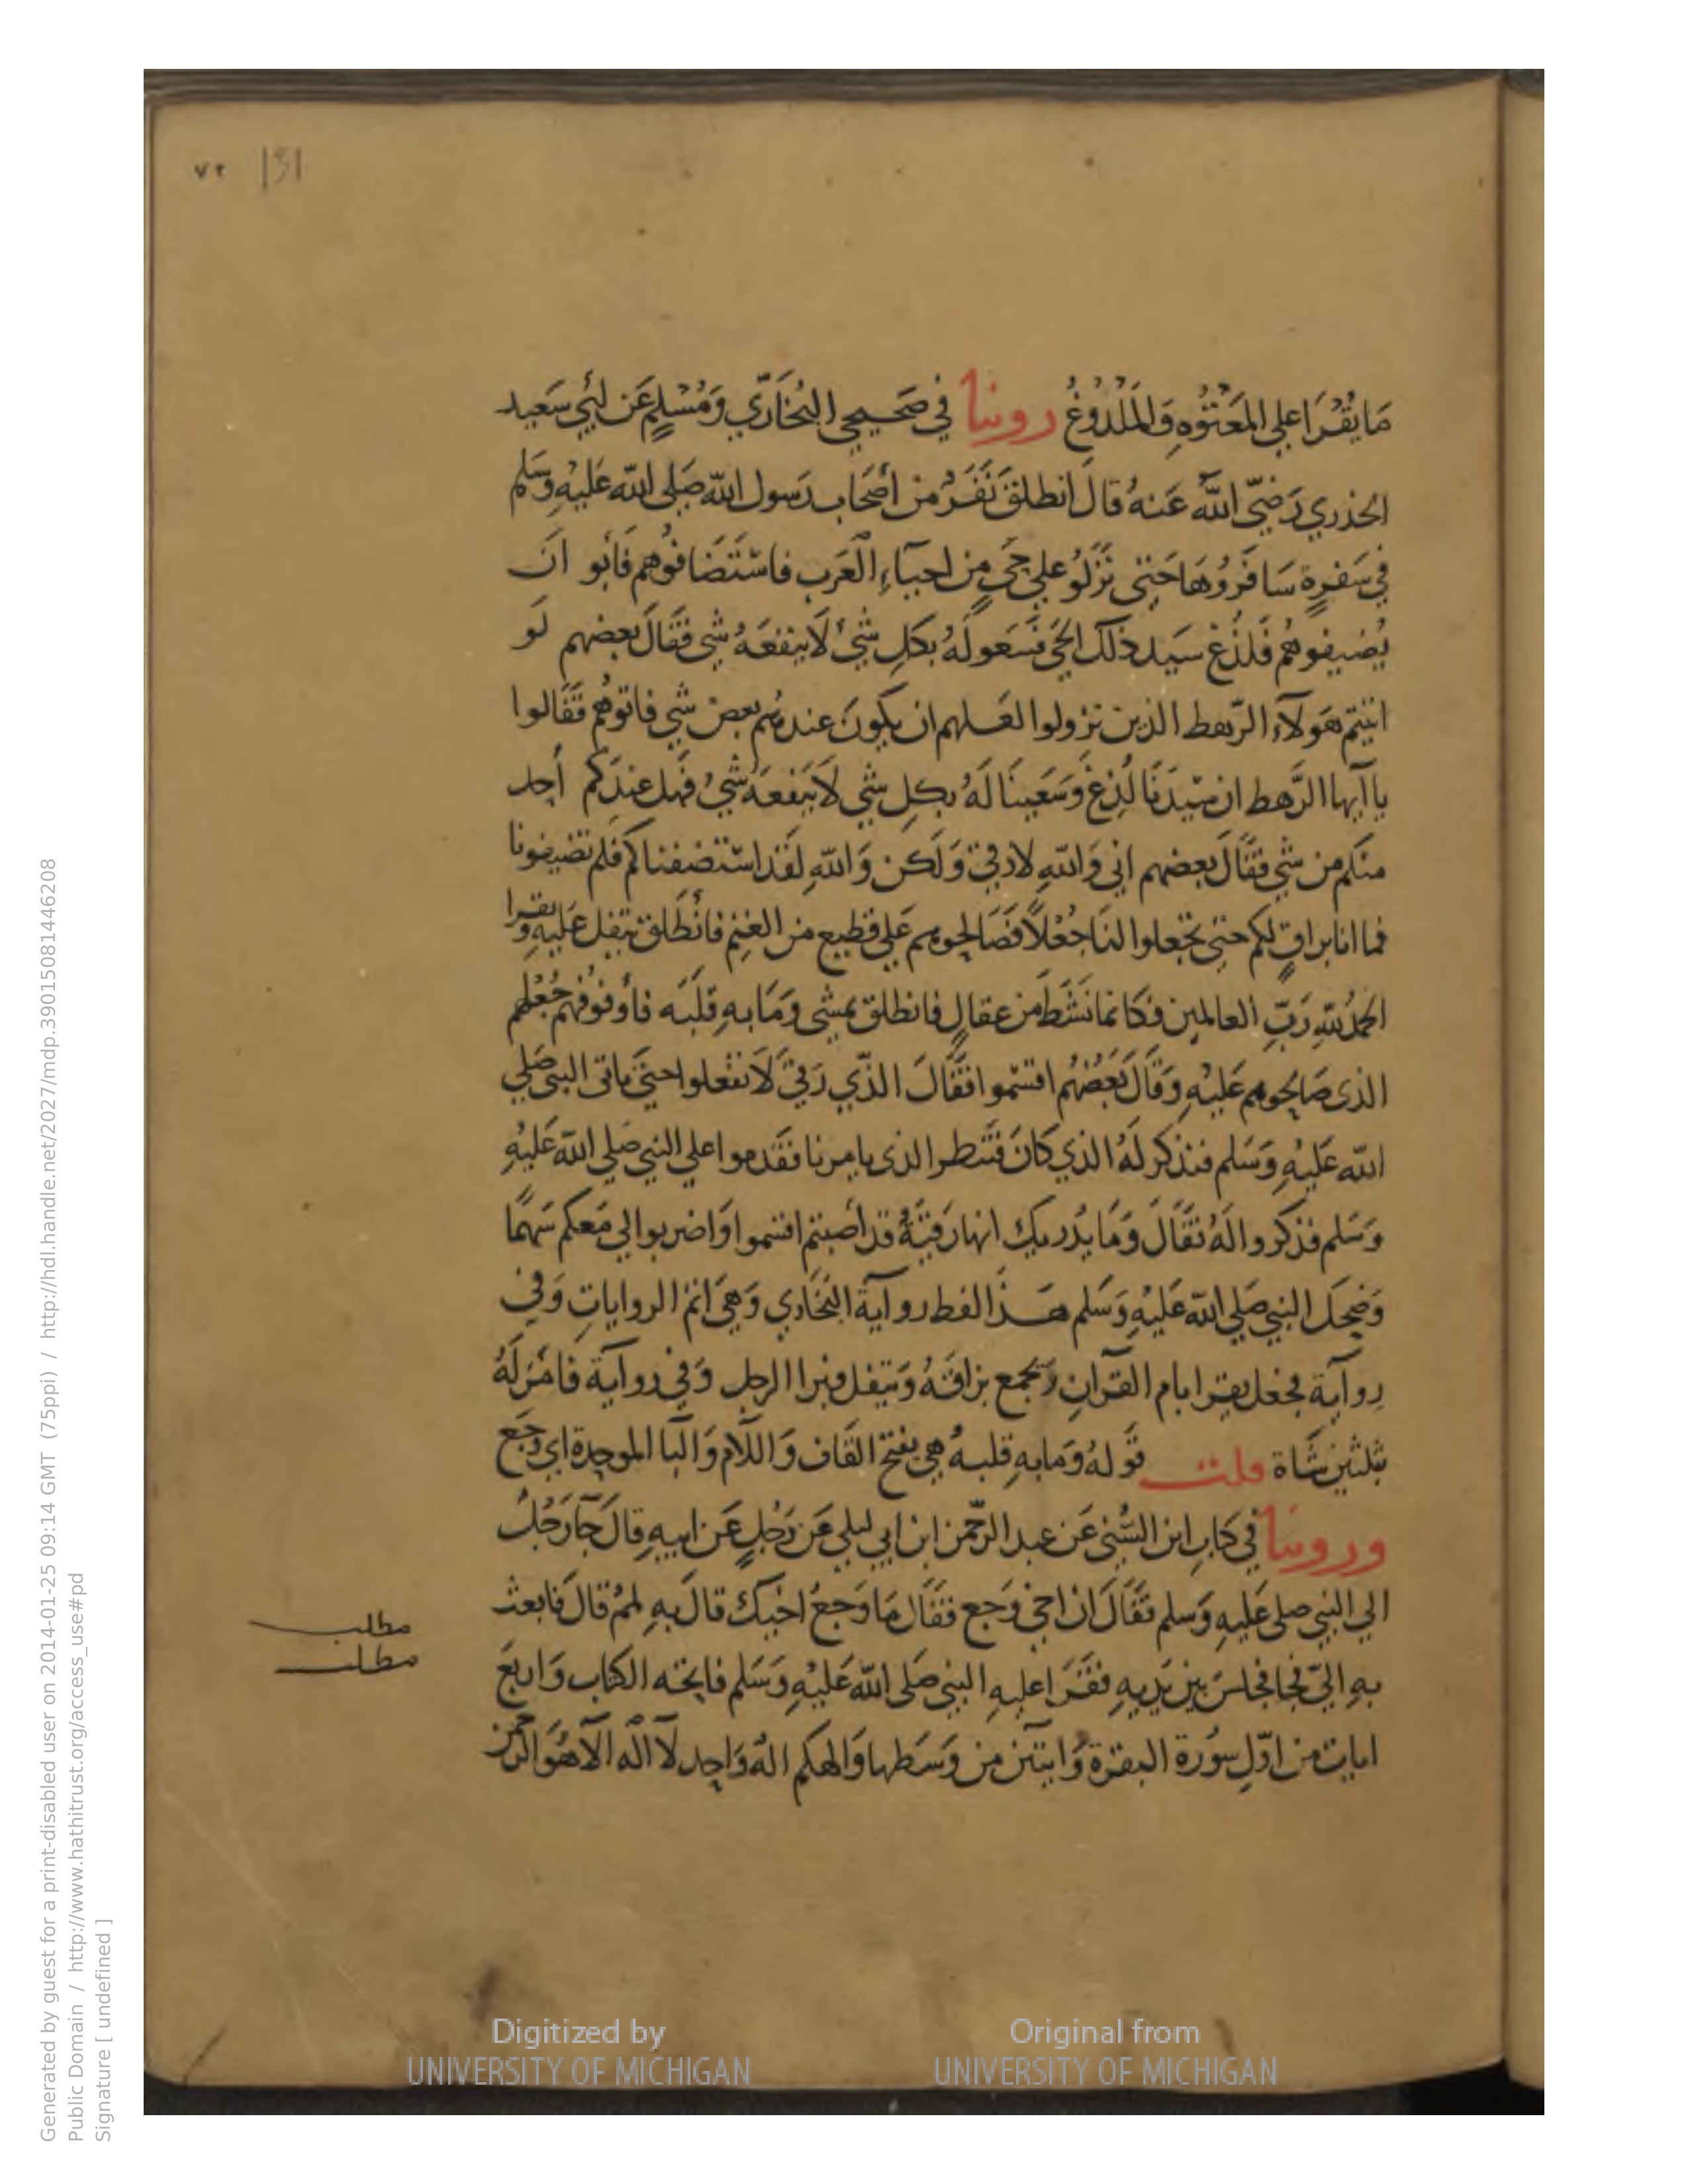 ٧٢ 131
مَا يُقْرَا علي المَعْتُوُهِ وَالمَلْدُوُغُ روينا في صَحيحي البُخَارّي وَمُسْلِمٍ عَن ابُي سَعيد
الخدري رَضيّ اللّٰهُ عَنهُ قالَ انطلقَ نَفَرُ من أصْحَاب رَسول اللّه صَلي اللّه عَليْهِ وَسَلم
في سَفرةٍ سَافَرُوُهَا حَتي نَزَلُو علي حَيٍ من احيآءِ العَرب فاسْتَضَافوُهم فَأبو انَ
يُضيفوهُم فَلدُغ سَيد ذلك الحَي فَسَعو لَهُ بكلِ شَيْ لَا ينفعَهُ شي فقالَ بعضهم لَو
اتيتم هَولآء الرّهط الذين نزولوا لعَلهم ان يكونَ عندهُم بعض شي فاتوهُم فَقَالوا
يا آيها الرَّهط ان سَيّدَنَا لُدِغَ وَسَعينَا لَهُ بكلِ شي لَا يَنفعَهُ شيُ فهَل عندَكم أحد
منكم من شي فقَالَ بعضهم اني وَاللّهِ لارقي وَلَكن وَاللّهِ لقَد استضفناكم فلم تضيفونا
فما انا براقٍ لكم حتي تجعلوا لنَا جُعْلًا فصَالحوهم عَلي قطيع من الغنم فأنطَلق يتفل عَليهِ وَيقرا
الحمدُ للّهِ رَبّ العالمين فكَانما نَشَطَ من عقالٍ فانطلق يمشي وَمَا بهِ قلَبَه فأوفوُهُم جُعْلهم
الذي صَالحوهم عَليْهِ وَقالَ بَعضهُم اقتسموا فقَالَ الذّي رَقيَ لَا تفعلوا حتيَ ياتي النبي صَلي
اللّه عَليْهِ وَسَلم فنذكر لَهُ الذي كانَ فنَنطر الذي يامرنا فقَدموا علي النبي صَلي اللّه عَليْهِ
وَسَلم فذكروا لَهُ فقَالَ وَمَا يُدريك انها رَقيَةُ قد أصَبتم اقتسموا وَاضربوا لي مَعكم سَهمًا
وَضحك النبي صَلي اللّه عَليْهِ وَسَلم هَذا لفط روآية البُخَاري وَهيَ اتم الروايات وَفي
روآية فجعل يقرا بام القرآن وَيجمع بزاقَهُ وَيتفل فبرا الرجل وَفي روآية فامَرَ لَهُ
بثلثين شَاة قلت قَولهُ وَمَا بهِ قلبهُ هي بفتح القَاف وَاللّام وَالبا الموحدة اي وَجَع
وروينا في كتابِ ابن السُّني عَن عبد الرحّمن ابن ابي ليلي عَن رَجُلٍ عَن ابيهِ قالَ جَآ رَجُلُ
الي النبي صلي عَليهِ وَسلم فقَالَ ان اخي وَجع فقَال مَا وَجَعُ اخيك قالَ بهِ لمَمُ قالَ فابعث
مطلب
بهِ اليَّ فجا فجلسَ بين يَديهِ فقَرَا عليهِ النبي صَلي اللّه عَليْهِ وَسَلم فاتحته الكتاب وَاربَع
مطلب
ايات من اوّلِ سوُرة البقرة وَايتَين من وَسَطها وَالهكم الهُ وَاحد لَآ الَه الّا هُوَ الرحمن
Digitized by
UNIVERSITY OF MICHIGAN
Original from
UNIVERSITY OF MICHIGAN
Generated by guest for a print-disabled user on 2014-01-25 09:14 GMT (75ppi) / http://hdl.handle.net/2027/mdp.39015081446208
Public Domain / http://www.hathitrust.org/access_use#pd
Signature [ undefined ]